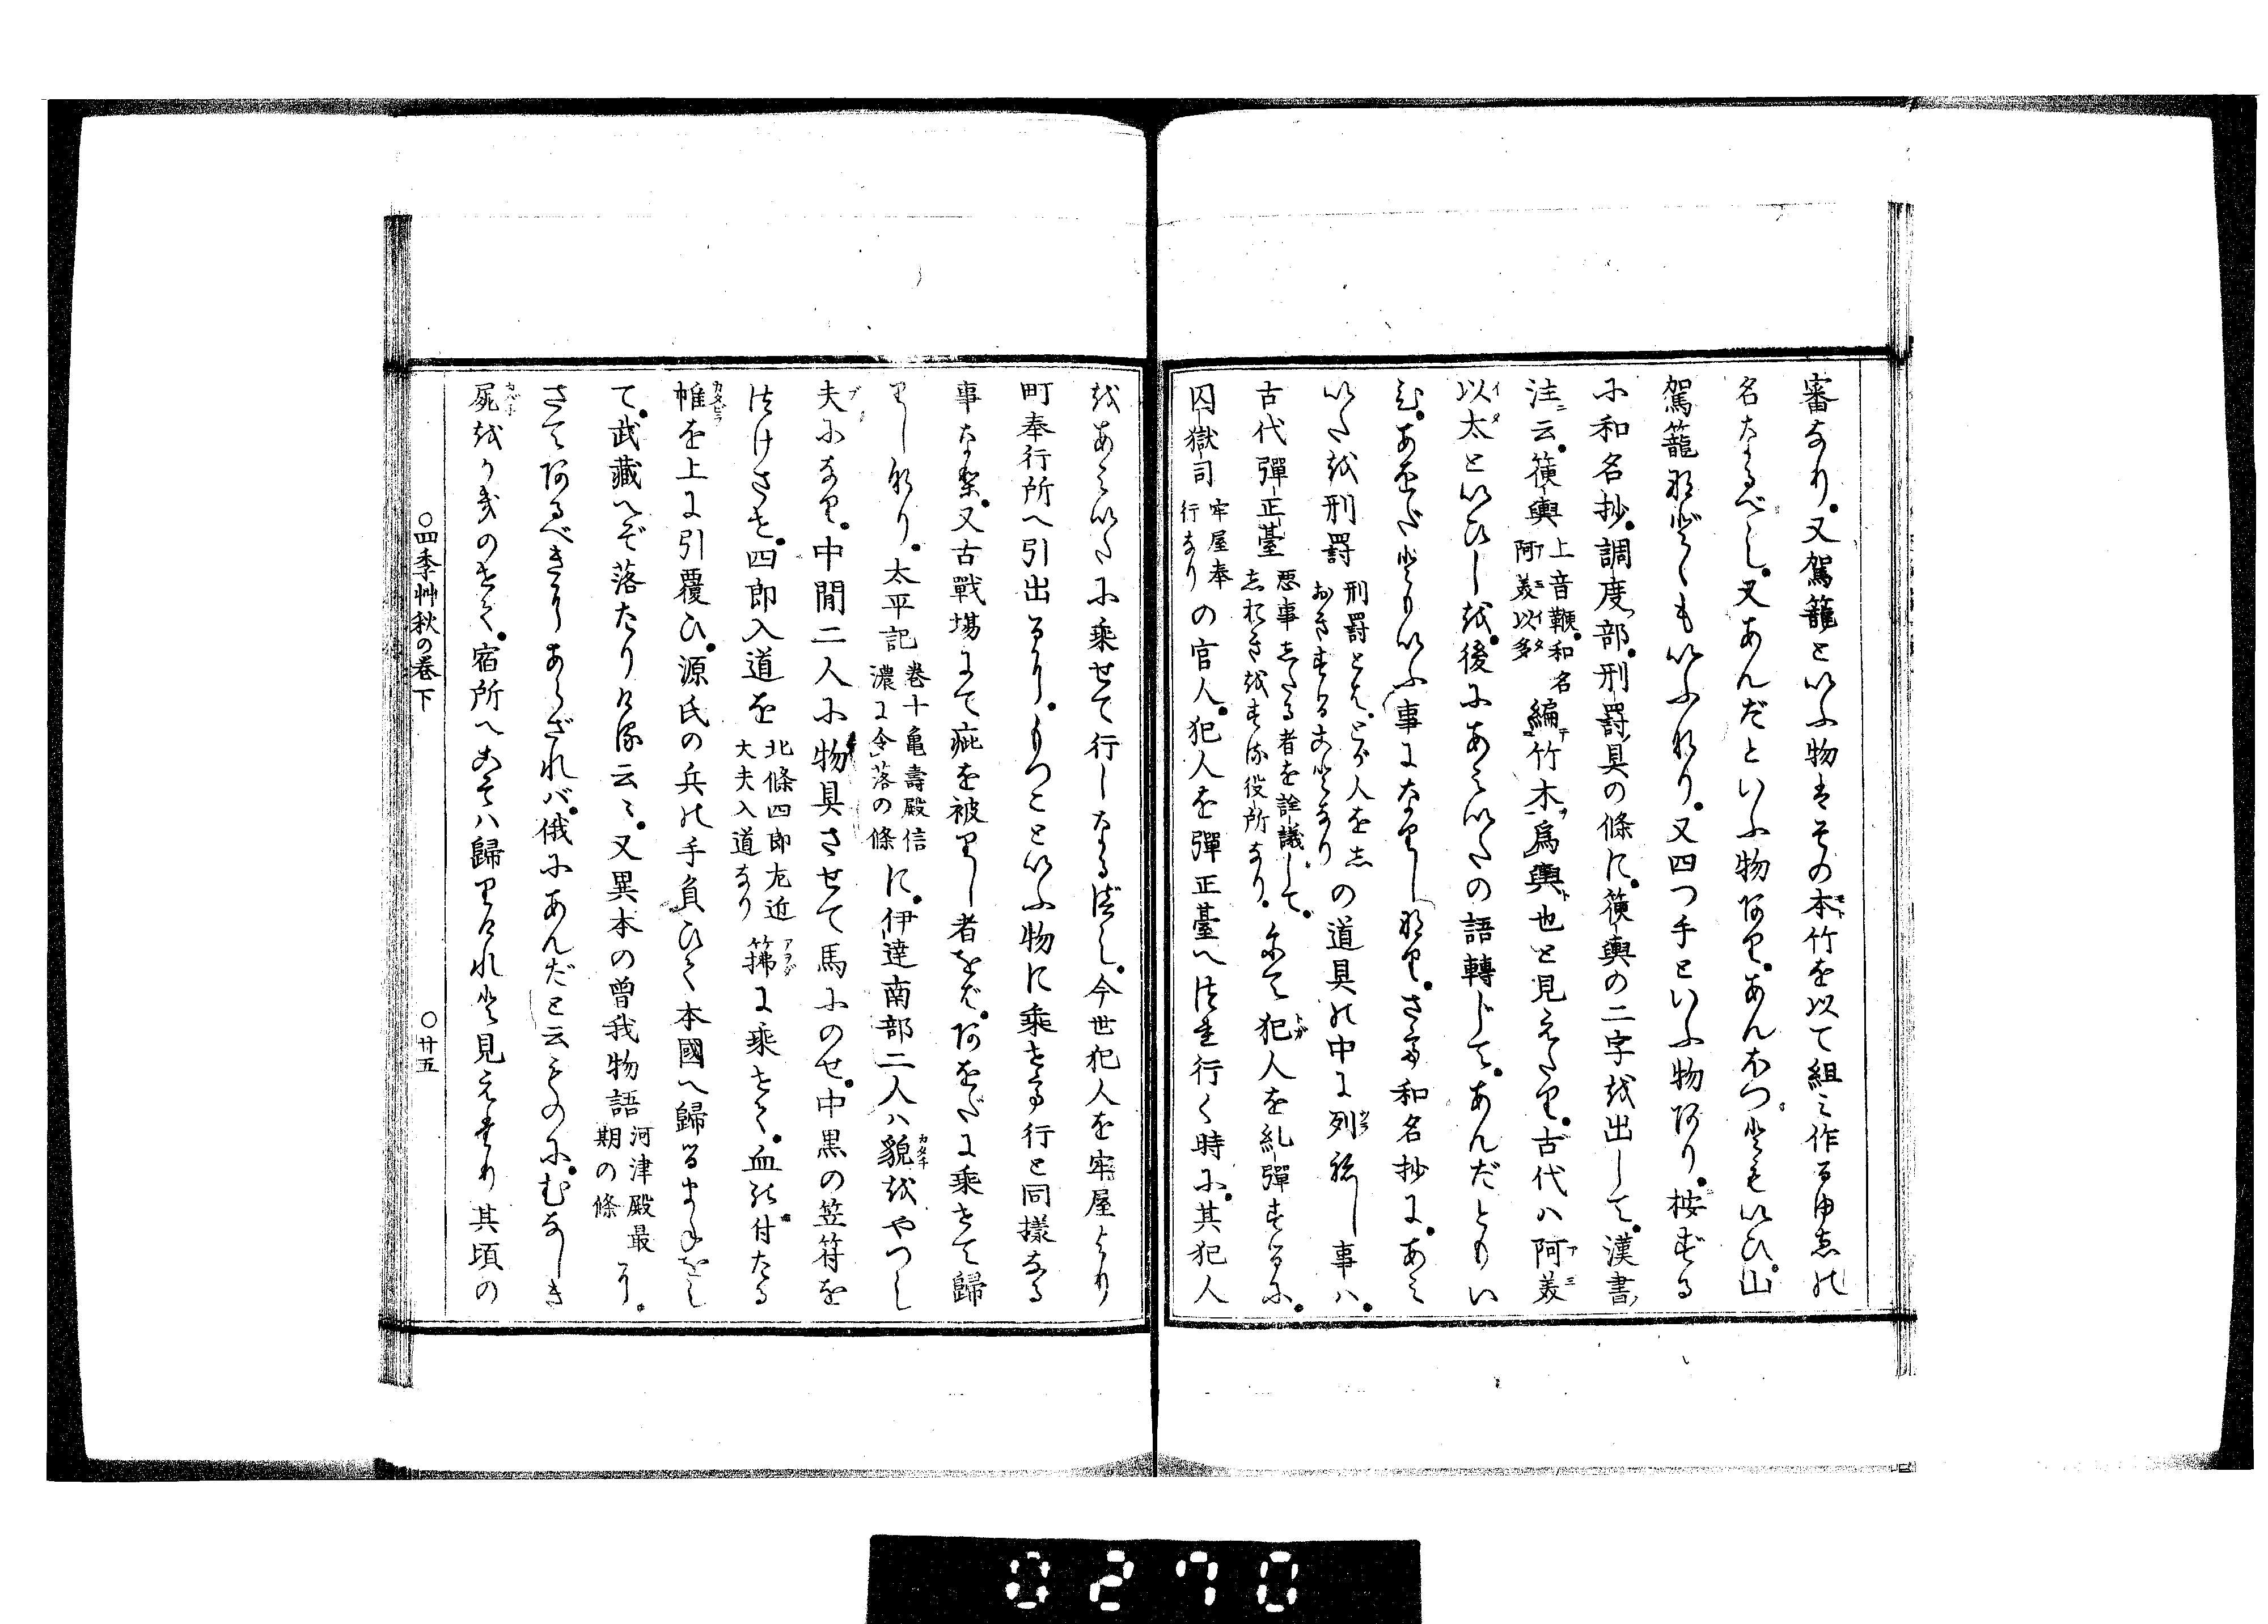 審なり。又駕籠といふ物はその本竹を以て組ミ作るゆゑの
名なるべし。又あんだといふ物あり。あんほつともいひ。山
駕籠などゝもいふなり。又四つ手といふ物あり。按ずる
に和名抄。調度部。刑罰具の條に。箯輿の二字を出して。漢書ノ
注ニ云。箯輿上音鞭。和名阿美以多編竹木爲輿也と見えたり。古代ハ阿美
以太といひしを。後にあみいたの語轉じて。あんだともい
ひ。あをだともいふ事になりしなり。さて和名抄に。あミ
いたを刑罰刑罰とは。とが人をしおきする事なりの道具の中に列ねし事ハ。
古代彈正臺悪事したる者を詮議して。しおきをする役所なり。にて犯人を糺彈するに。
囚獄司牢屋奉行なりの官人。犯人を彈正臺へつれ行く時に。其犯人
をあミいたに乘せて行しなるべし。今世犯人を牢屋より
町奉行所へ引出るに。もつこといふ物に乘せて行と同様なる
事なり。又古戰場にて疵を被りし者をば。あをだに乘せて歸
りしなり。太平記卷十亀壽殿信濃に令落の條に。伊達南部二人ハ貌をやつし
夫になり。中間二人に物具させて馬にのせ。中黒の笠符を
つけさせ。四郎入道を北條四郎左近大夫入道なり箯に乘せて。血の付たる
帷を上に引覆ひ。源氏の兵の手負ひて本國へ歸るまねをし
て。武藏へぞ落たりける云々。又異本の曽我物語河津殿最期の條に。
さてあるべきにあらざれバ。俄にあんだと云ものに。むなしき
屍をかきのせて。宿所へこそハ歸りけれと見えたり其頃の
○四季艸秋の卷下　○廿五
0270